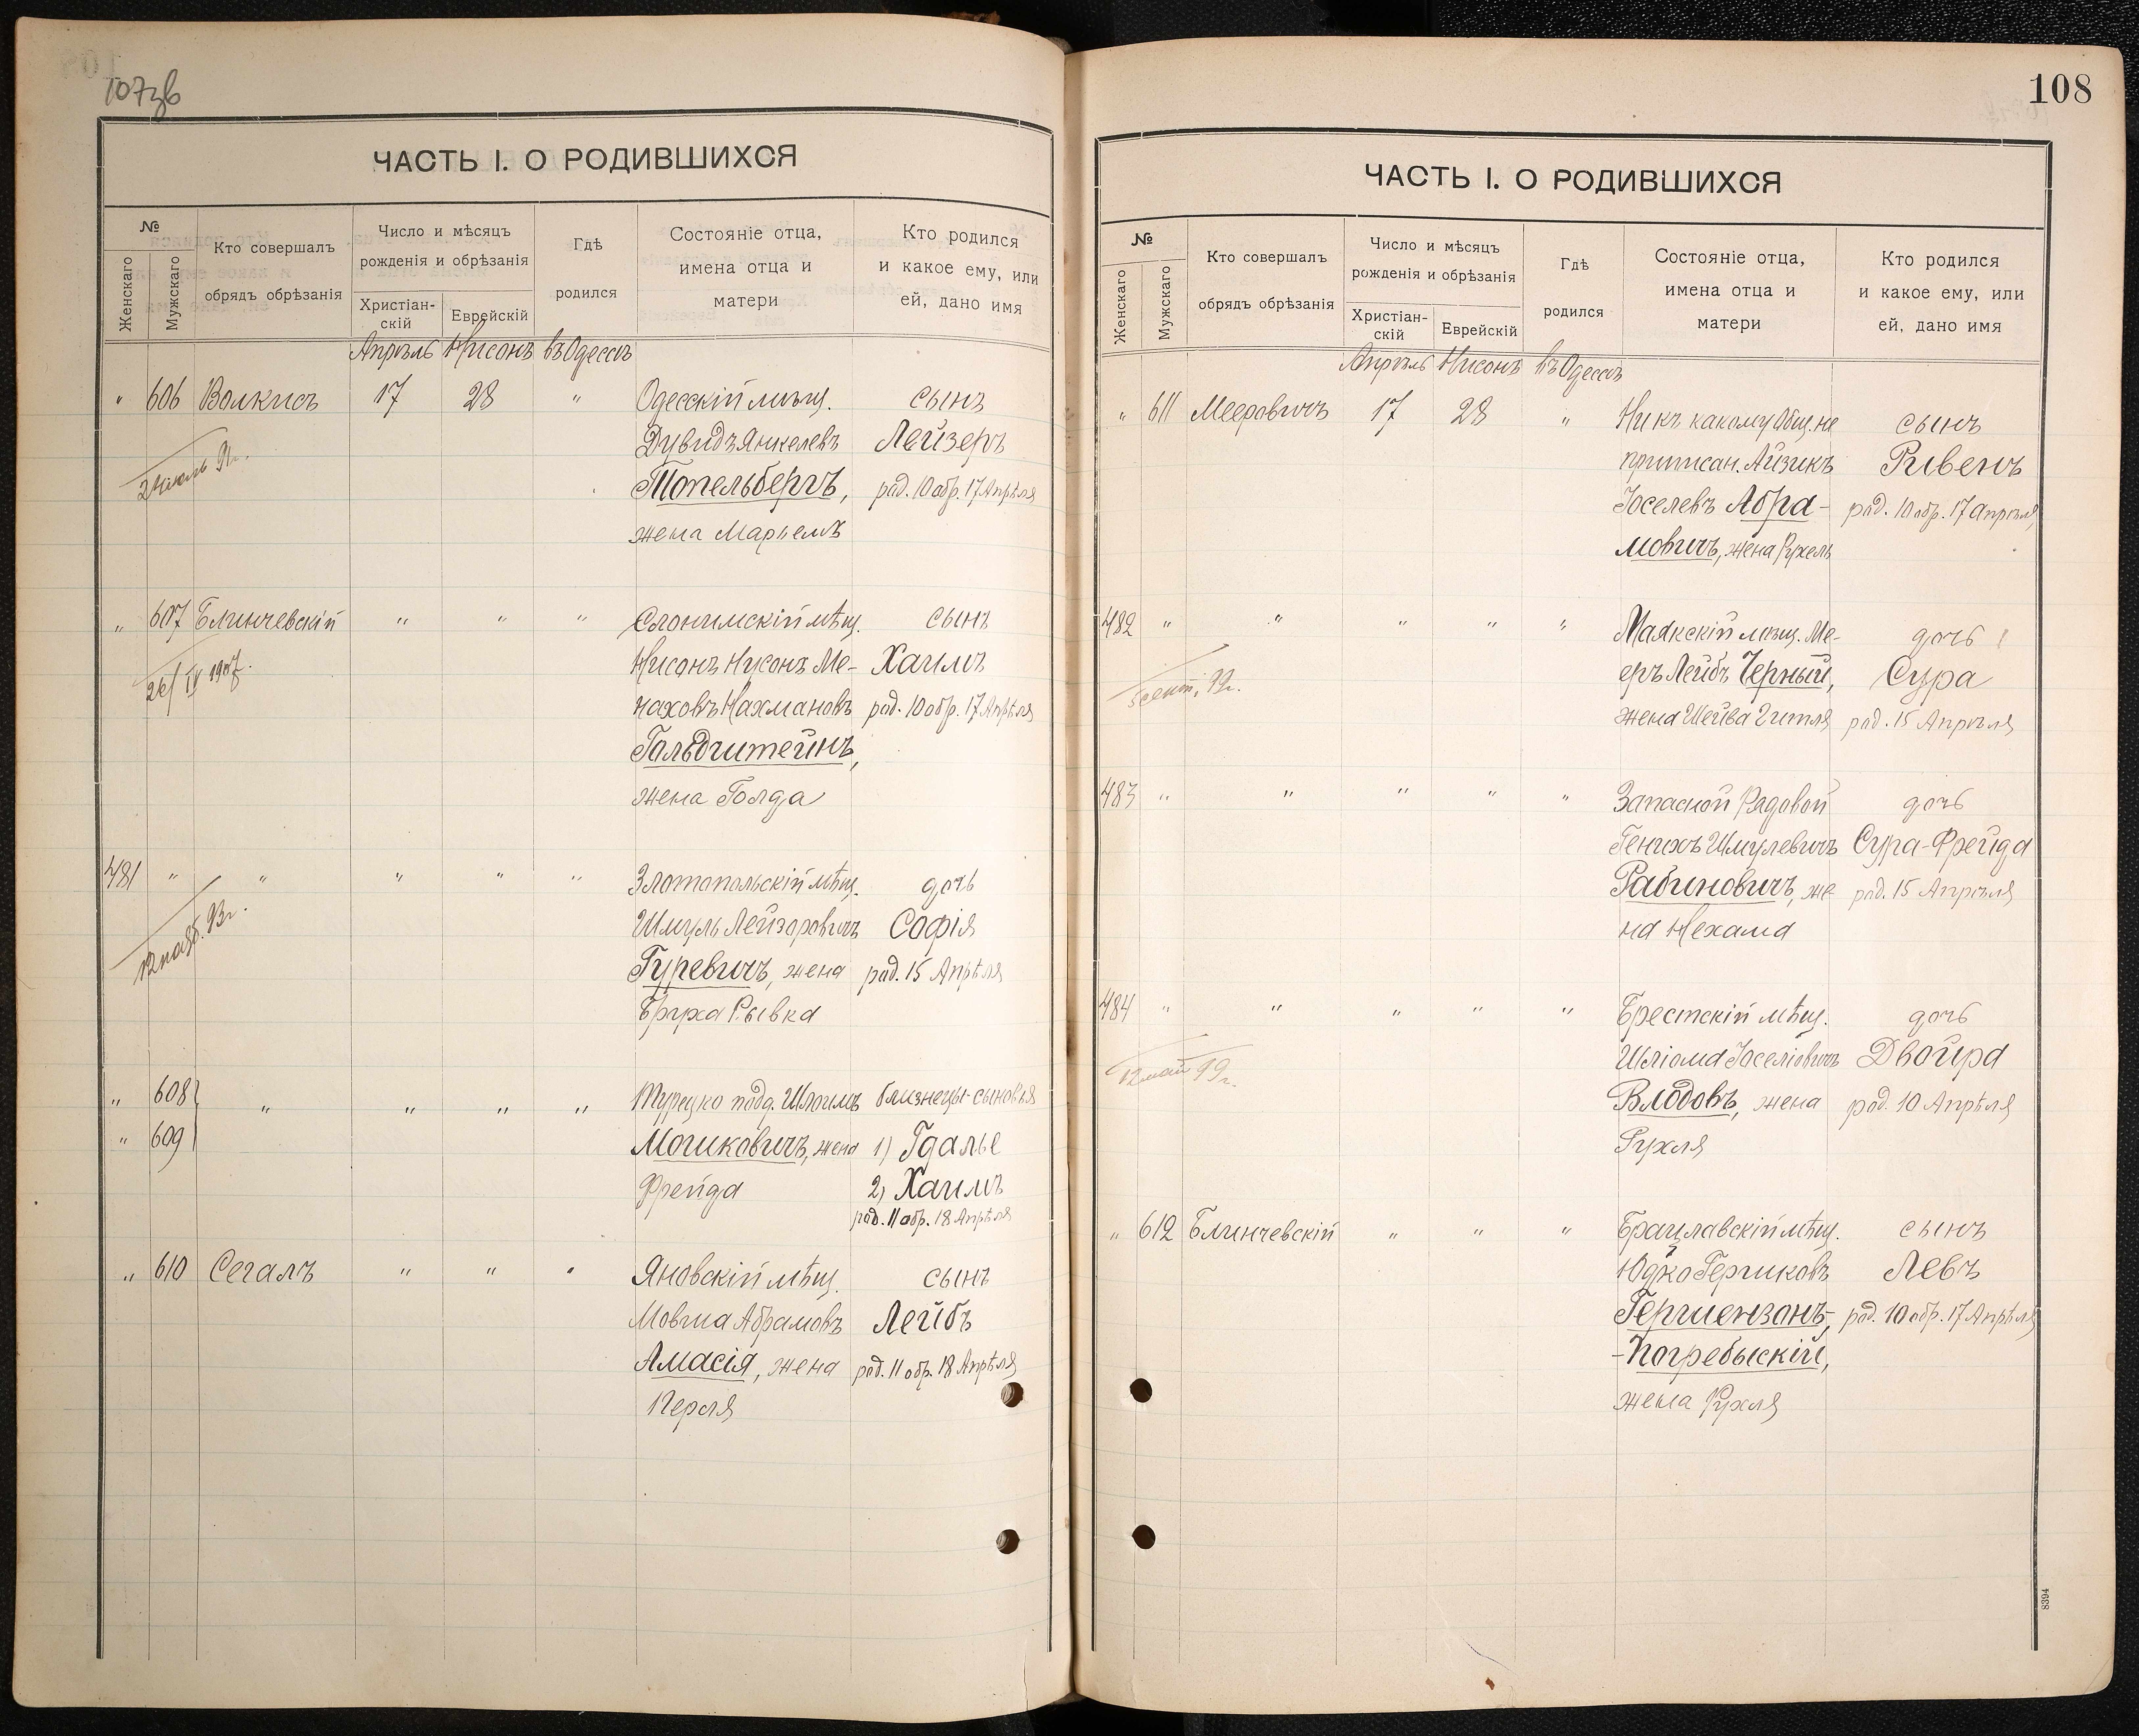 107зв
ЧАСТЬ I. О РОДИВШИХСЯ
№
Женскаго
Мужскаго
Кто совершалъ
обрядъ обрѣзанія
Число и мѣсяцъ
рожденія и обрѣзанія
Христіан-
скій
Еврейскій
Гдѣ
родился
Состояніе отца,
имена отца и
матери
Кто родился
и какое ему, или
ей, дано имя
Апрѣль Нисонъ въ Одессѣ
" 606 Волкисъ 17 28 " Одесскій мѣщ. сынъ
Дувидъ Янкелевъ Лейзеръ
Топельбергъ, рад. 10 обр. 17 Апрѣля
жена Маріемъ
" 607 Блинчевскій " " " Слонимскій мѣщ. сынъ
26/IV 1907.
Нисонъ Нусонъ Ме- Хаимъ
наховъ Нахмановъ рад. 10 обр. 17 Апрѣля
Гольдштейнъ,
жена Голда
481 " " " " " Златопольскій мѣщ. дочь
12 нояб. 93г.
Шмуль Лейзоровичъ Софія
Гуревичъ, жена рад. 15 Апрѣля
Бруха Рывка
" 608 " " " " Турецко подд. Шлоимъ близнецы-сыновья
" 609 Мошковичъ, жена 1) Гдалье
Фрейда 2) Хаимъ
рад. 11 обр. 18 Апрѣля
" 610 Сегалъ " " " Яновскій мѣщ. сынъ
Мовша Абрамовъ Лейбъ
Амасія, жена рад. 11 обр. 18 Апрѣля
Перля
108
ЧАСТЬ I. О РОДИВШИХСЯ
№
Женскаго
Мужскаго
Кто совершалъ
обрядъ обрѣзанія
Число и мѣсяцъ
рожденія и обрѣзанія
Христіан-
скій
Еврейскій
Гдѣ
родился
Состояніе отца,
имена отца и
матери
Кто родился
и какое ему, или
ей, дано имя
Апрѣль Нисонъ въ Одессѣ
" 611 Мееровичъ 17 28 " Ни къ какому Общ. не сынъ
приписан. Айзикъ Рувенъ
Іоселевъ Абра- рад. 10 обр. 17 Апрѣля
мовичъ, жена Рухель
482 " " " " " Маякскій мѣщ. Ме- дочь
5 сент. 99г.
еръ Лейбъ Черный, Сура
жена Шейва Гитля рад. 15 Апрѣля
483 " " " " " Запасной Рядовой дочь
Генихъ Шмулевичъ Сура-Фрейда
Рабиновичъ, же рад. 15 Апрѣля
на Нехама
484 " " " " " Брестскій мѣщ. дочь
12 май 99г.
Шліома Іоселіовичъ Двойра
Влодовъ, жена рад. 10 Апрѣля
Рухля
" 612 Блинчевскій " " " Брацлавскій мѣщ. сынъ
Юдко Гершковъ Левъ
Гершензонъ- рад. 10 обр. 17 Апрѣля
-Погребыскій,
жена Рухля
8394